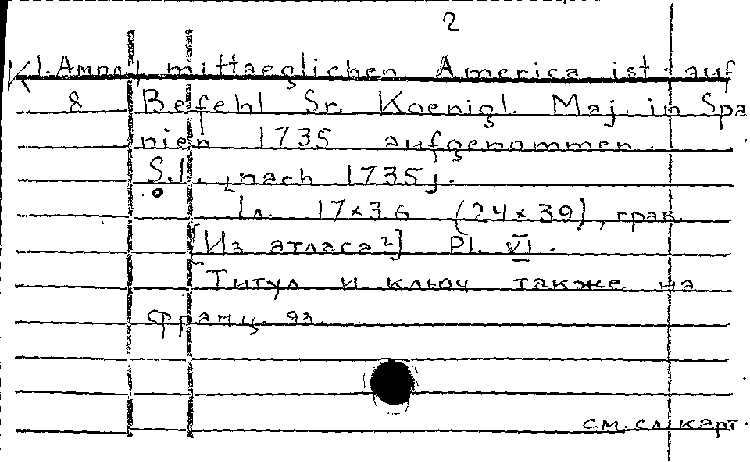 2
К 1. Ампл 1 mittaeglichen America ist auf
8 Befehl Sr. Koenigl. Maj. in Spa
nien 1735 aufgenommen.
S.l., [nach 1735].
1 л. 17×36 (24×39), грав.
[Из атласа?] Pl. VI.
Титул и ключ также на
франц. яз.
см. сл. карт.